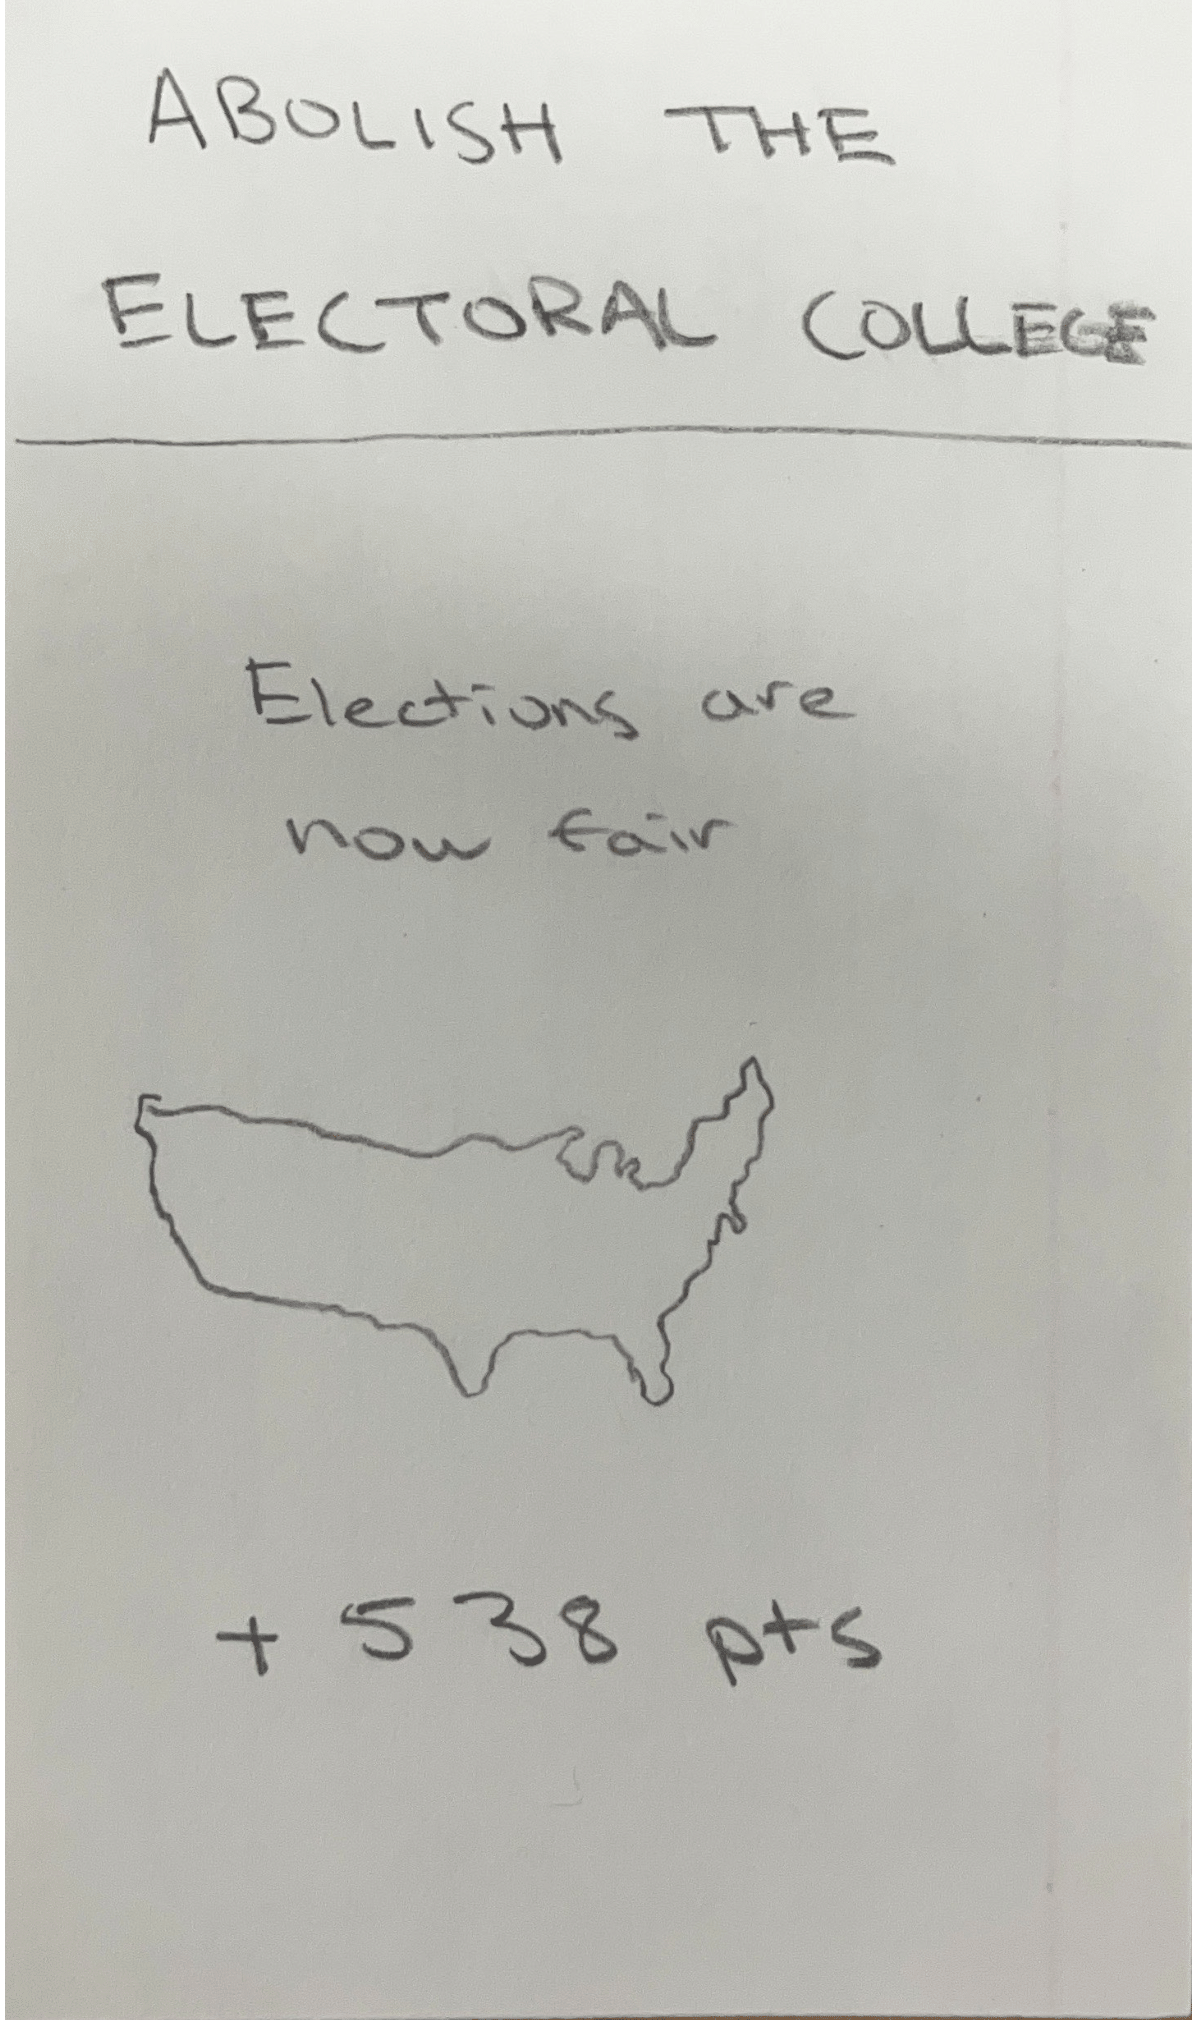 ABOLISH THE
ELECTORAL COLLEGE
Elections are
now fair
+ 538 pts